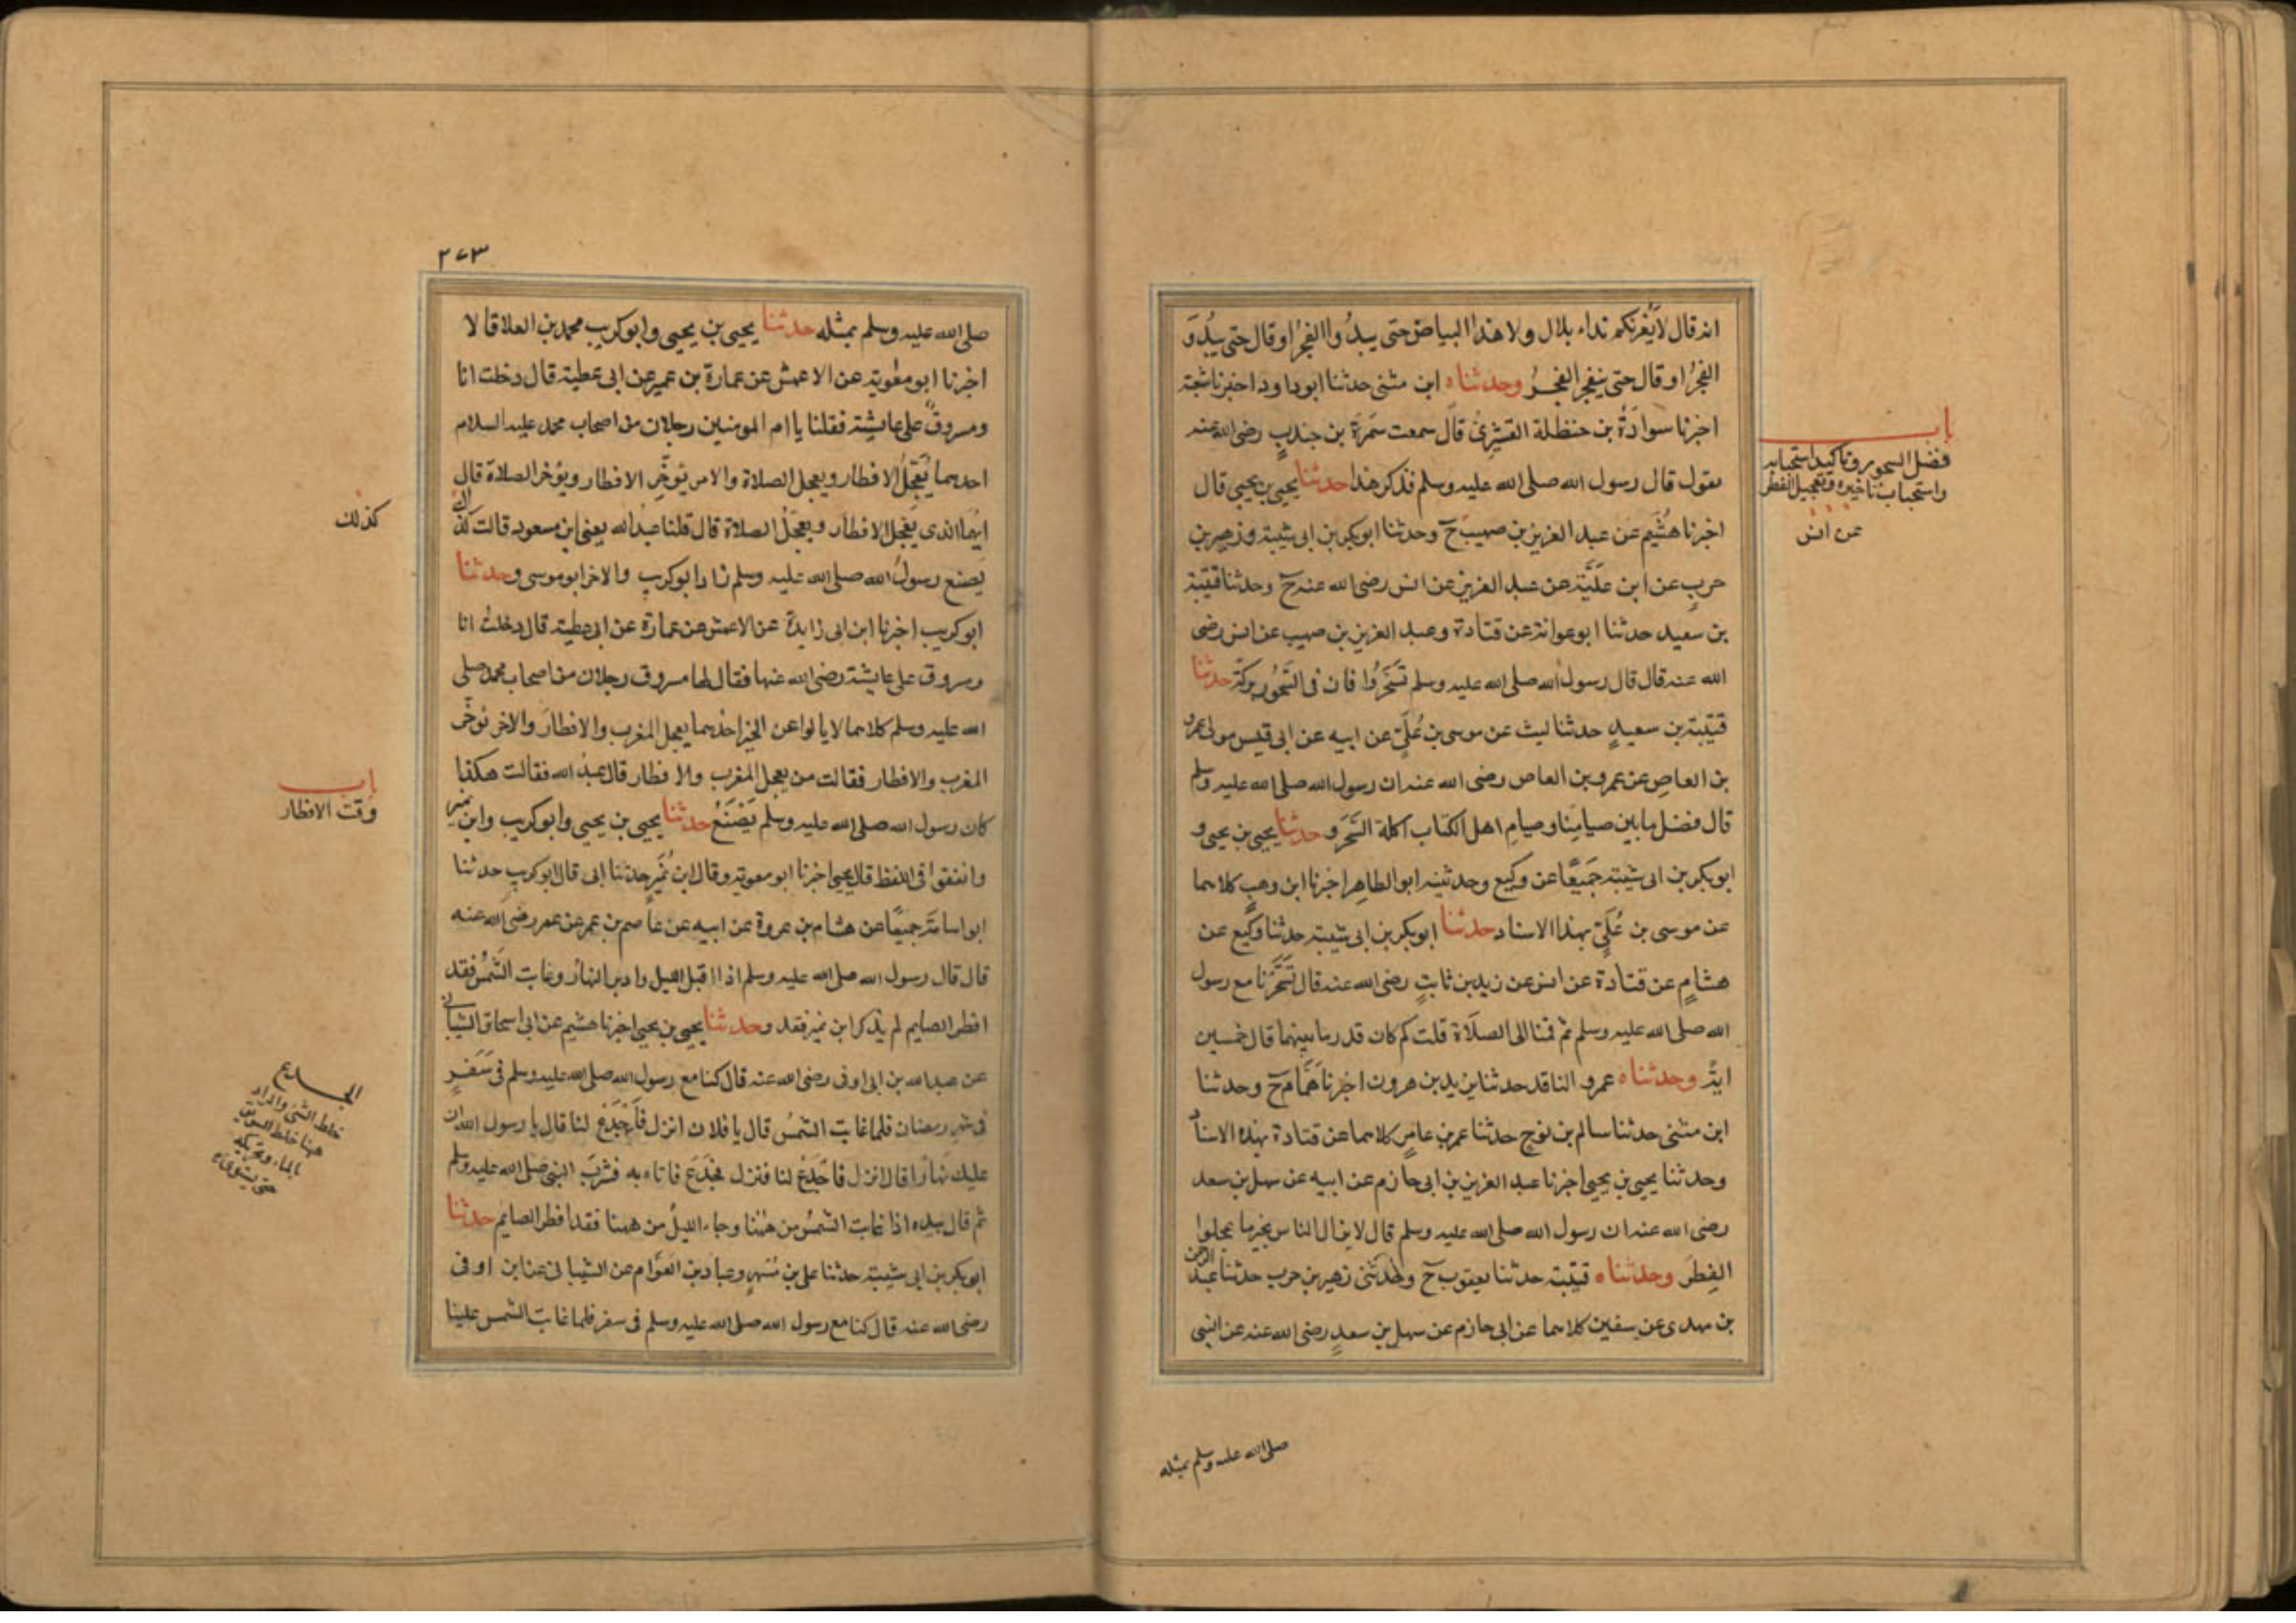 انه قال لا يَغُرنكم نداء بلال ولا هذا البياض حتى يبدُوا الفجرُ او قال حتى يبُدوَ
الفجرُ او قال حتى ينفجر الفجرُ وحدثناه ابن مثنى حدثنا ابوداود اخبرنا شعبة
اخبرنا سوادَةُ بن حنظلة القشيرىُ قال سمعت سَمرَة بن جندبٍ رضى الله عنه
يقول قال رسول الله صلى الله عليه وسلم فذكر هذا حدثنا يحيى بن يحيى قال
اخبرنا هُشَيم عن عبد العزيز بن صهيب ح وحدثنا ابوبكر بن ابى شيبة وزهير بن
حربٍ عن ابن علَيَّة عن عبد العزيز عن انس رضى الله عنه ح وحدثنا قتيبة
بن سعيد حدثنا ابوعوانة عن قتادة وعبد العزيز بن صهيب عن انس رضى
الله عنه قال قال رسول الله صلى الله عليه وسلم تسَحَّرُوا فان فى السَّحُور بركة حدثنا
قتيبة بن سعيدٍ حدثنا ليث عن موسى بن عُلَىّ عن ابيه عن ابى قيس مولى عمرو
بن العاصِ عن عمرو بن العاص رضى الله عنه ان رسول الله صلى الله عليه وسلم
قال فضل ما بين صيامِنا وصيامِ اهل الكتاب اكلة السَّحَر وحدثنا يحيى بن يحيى و
ابوبكر بن ابى شيبة جَميعًا عن وكيع وحدثنيه ابوالطاهر اخبرنا ابن وهبٍ كلاهما
عن موسى بن عُلَىّ بهذا الاسناد حدثنا ابوبكر بن ابى شيبة حدثنا وكيع عن
هشامٍ عن قتادة عن انس عن زيد بن ثابتٍ رضى الله عنه قال تسَحَّرنا مع رسول
الله صلى الله عليه وسلم ثم قمنا الى الصلَاة قلت كم كان قدر ما بينهما قال خمسين
ايةً وحدثناه عمرو الناقد حدثنا يزيد بن هرون اخبرنا همَّام ح وحدثنا
ابن مثنى حدثنا سالم بن نوحٍ حدثنا عمر بن عامرٍ كلاهما عن قتادة بهذه الاسناد
وحدثنا يحيى بن يحيى اخبرنا عبد العزيز بن ابى حازم عن ابيه عن سهل بن سعد
رضى الله عنه ان رسول الله صلى الله عليه وسلم قال لا يزال الناس بخير ما عجلوا
الفِطرَ وحدثناه قتيبة حدثنا يعقوب ح وحدثنى زهير بن حرب حدثنا عبد الرحمن
بن مهدى عن سفين كلاهما عن ابى حازم عن سهل بن سعدٍ رضى الله عنه عن النبى
صلى الله عليه وسلم بمثله
باب
فضل السحور وتاكيد استحبابه
واستحباب تاخيره وتعجيل الفطر
عن انس
٢٧٣
صلى الله عليه وسلم بمثله حدثنا يحيى بن يحيى وابوكريب محمد بن العلا قالا
اخبرنا ابومعوية عن الاعمش عن عمارة بن عمير عن ابى عطية قال دخلت انا
ومسروقٌ على عايشة فقلنا يا ام المومنين رجلان من اصحاب محمد عليه السلام
احدهما يُعَجِلُ الافطار ويعجل الصلاة والاخر يؤخِّر الافطار ويؤخر الصلاة قال
ايهما الذى يعجل الافطار ويعجلُ الصلاة قال قلنا عبد الله يعنى ابن مسعود قالت كذلك
يَصنع رسولُ الله صلى الله عليه وسلم زاد ابوكريب والاخر ابوموسى وحدثنا
ابوكريب اخبرنا ابن ابى زايدة عن الاعمش عن عمارة عن ابى عطية قال دخلت انا
ومسروق على عايشة رضى الله عنها فقال لها مسروق رجلان من اصحاب محمد صلى
الله عليه وسلم كلاهما لا يالوا عن الخير احدهما يعجل المغرب والافطارَ والاخر يؤخّر
المغرب والافطار فقالت من يعجل المغرب والافطار قال عبد الله فقالت هكذا
كان رسول الله صلى الله عليه وسلم يَصْنَعُ حدثنا يحيى بن يحيى وابوكريب وابن نمير
واتفقوا فى اللفظ قال يحيى اخبرنا ابومعوية وقال ابن نُمَيرٍ حدثنا ابى قال ابوكريب حدثنا
ابواسامَةَ جميعًا عن هشام بن عروة عن ابيه عن عاصم بن عمر عن عمر رضى الله عنه
قال قال رسول الله صلى الله عليه وسلم اذا اقبل الليل وادبر النهارُ وغابت الشَّمسُ فقد
افطر الصايم لم يذكر ابن نمير فقد وحدثنا يحيى بن يحيى اخبرنا هشيم عن ابى اسحاق الشيبانى
عن عبد الله بن ابى اوفى رضى الله عنه قال كنا مع رسول الله صلى الله عليه وسلم فى سَفَرٍ
فى شهر رمضان فلما غابت الشمسُ قال يا فلان انزل فَاجْدَحْ لنا قال يا رسول الله ان
عليك نهارًا قال انزل فاجْدَحْ لنا فنزل فجَدَحَ فاتاه به فشربَ النبى صلى الله عليه وسلم
ثم قال بيده اذا غابت الشمسُ من هٰهنا وجاء الليلُ من ههنا فقد افطر الصايم حدثنا
ابوبكر بن ابى شيبة حدثنا على بن مُسْهرٍ وعباد بن العَوَّام عن الشيبانى عن ابن اوفى
رضى الله عنه قال كنا مع رسول الله صلى الله عليه وسلم فى سفر فلما غابت الشمس علينا
كذلك
باب
وقت الافطار
خلط الشئ
ههنا خلط السويق
بالماء وتحريكه
حتى يستوى